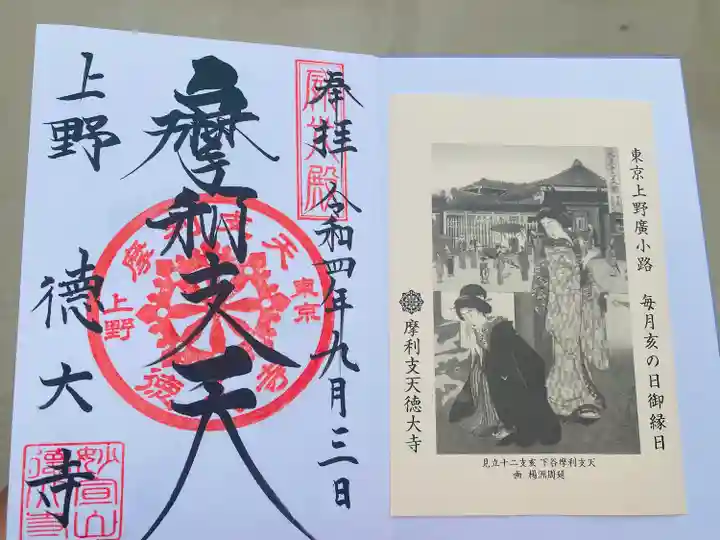 奉拝 令和四年九月三日
摩利支天
上野 徳大寺
摩利支天
東京
上野
東京上野廣小路 毎月亥の日御縁日
摩利支天徳大寺
見立十二支亥 下谷摩利支天
楊洲周延 画